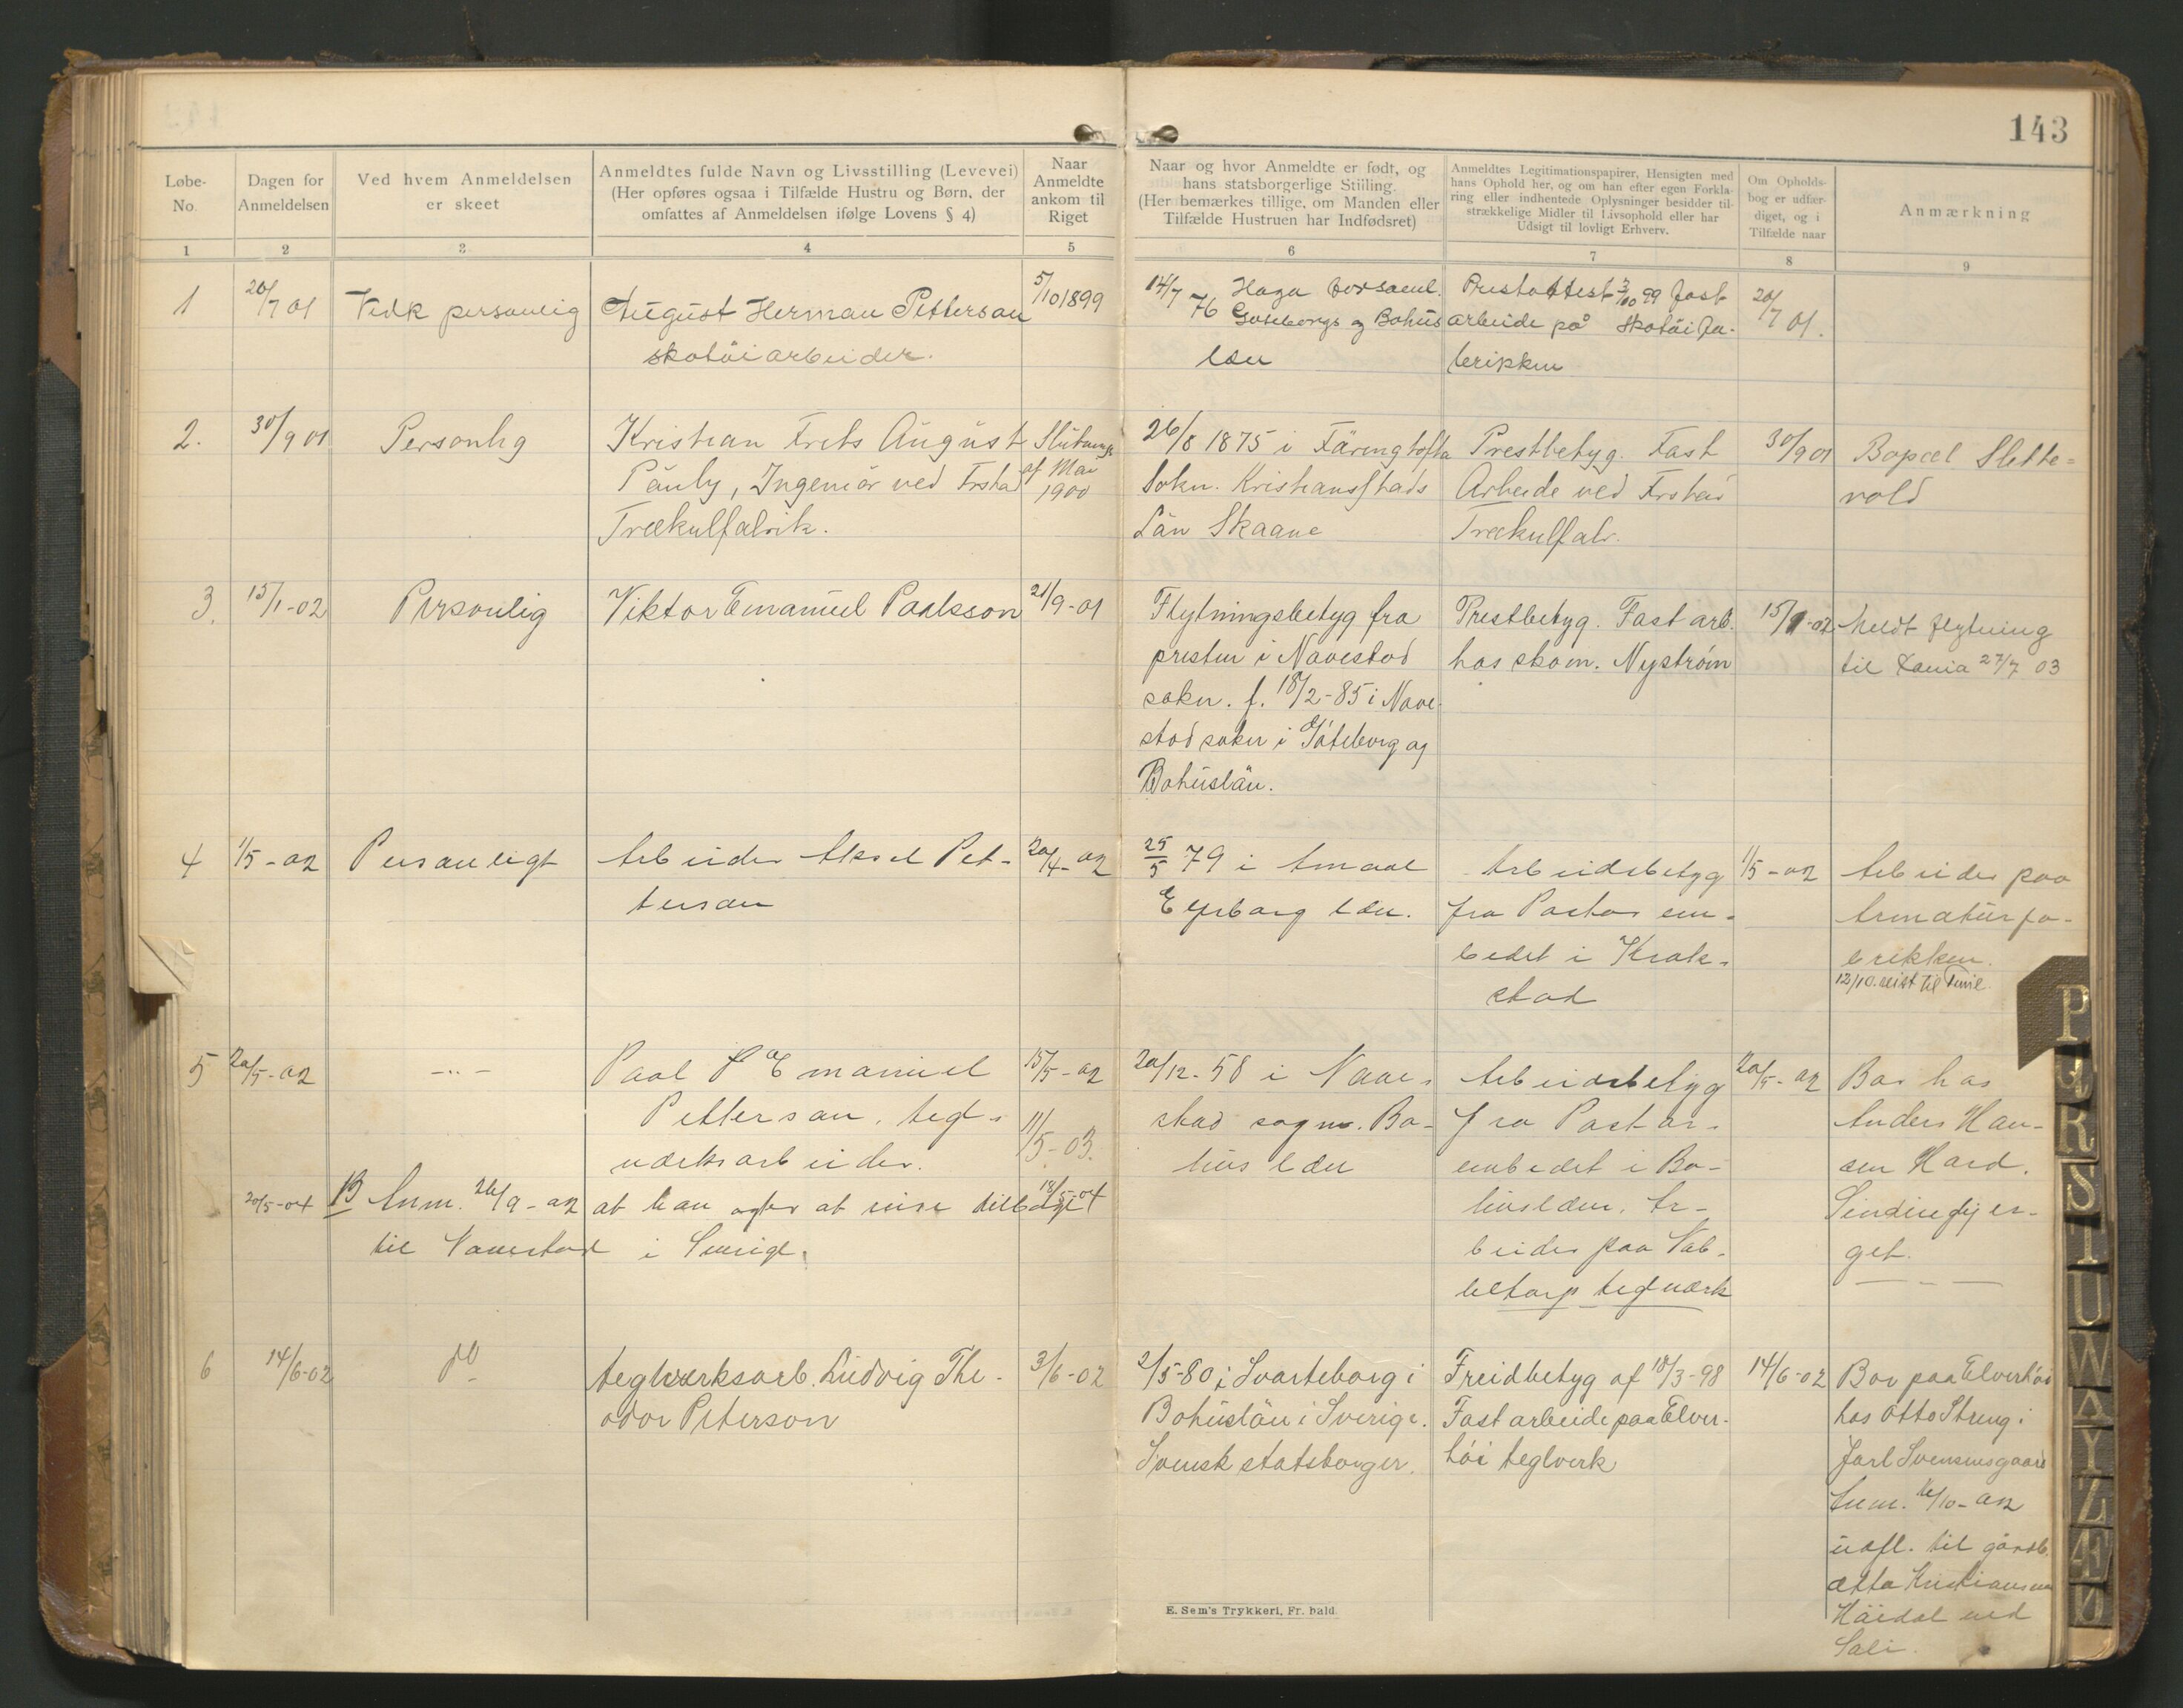 143
Løbe-
No.
Dagen for
Anmeldelsen
Ved hvem Anmeldelsen
er skeet
Anmeldtes fulde Navn og Livsstilling (Levevei)
(Her opføres ogsaa i Tilfælde Hustru og Børn, der
omfattes af Anmeldelsen ifølge Lovens § 4)
Naar
Anmeldte
ankom til
Riget
Naar og hvor Anmeldte er født, og
hans statsborgerlige Stilling.
(Her bemærkes tillige, om Manden eller
Tilfælde Hustruen har Indfødsret)
Anmeldtes Legitimationspapirer, Hensigten med
hans Ophold her, og om han efter egen Forkla-
ring eller indhentede Oplysninger besidder til-
strækkelige Midler til Livsophold eller har
Udsigt til lovligt Erhverv.
Om Opholds-
bog er udfær-
diget, og i
Tilfælde naar
Anmærkning
1 2 3 4 5 6 7 8 9
1
20/7 01
Vedk personlig
August Herman Petterson
skotöiarbeider.
5/10 1899
14/7 76 Haga forsaml.
Goteborgs og Bohus
læn
Prestattest 3/10 99 fast
arbeide på skotöifa-
brikken
20/7 01.
2.
30/9 01
Personlig
Kristian Frits August
Pauly, Ingeniör ved
Trækulfabrik.
Slutning
af Mai
1900
26/8 1875 i Färingtofta
Sokn. Kristiansstads
Län Skaane
Prestbetyg. Fast
Arbeide ved
Trækulfabr.
30/9 01
Bopæl Slette-
vold
3.
15/1-02
Personlig
Viktor Emanuel Paalsson
21/9-01
Flytningsbetyg fra
presten i Navestad
sokn. f. 18/2-85 i Nave-
stad sokn i Göteborg og
Bohuslän.
Prestbetyg. Fast arb.
hos skom. Nyström
15/1-02
meldt flytning
til Xania 27/7 03
4
1/5-02
Personligt
Arbeider Aksel Pet-
terson
20/4-02
25/5 79 i Amaal
Elfsborg læn.
Arbeidsbetyg
fra Pastor em-
bedet i Krak-
stad
1/5-02
Arbeider paa
Armaturfa-
brikken.
12/10 reist til
5
20/5-02
-"-
Paal P Emanuel
Petterson, tegl-
værksarbeider.
15/5-02
11/5-03.
20/12-58 i Nave-
stad sogn. Bo-
hus læn
Arbeidsbetyg
fra Pastor-
embedet i Bo-
huslæn. Ar-
beider paa Kab-
beltorp teglværk
20/5-02
Bor hos
Anders Han-
sen Hard.
Sindingfjer-
get.
20/5-04
Anm. 26/9-02 at han agter at reise tilbage
18/5-04
til Navestad i Sverige.
6
14/6-02
do
teglværksarb. Ludvig The-
odor Peterson
3/6-02
2/5-80 i Svarteborg i
Bohuslän i Sverige.
Svensk statsborger.
Freidbetyg af 18/3-98
Fast arbeide paa Elver-
höi teglverk
14/6-02
Bor paa Elverhöi
hos Otto Streng i
Jarl Svensensgaard
Anm. 16/10-02
uafl. til gårdb.
Otto Kristiansen
Höidal ved
Sali.
E. Sem's Trykkeri, Fr. hald.
P
Q
R
S
T
U
W
Y
Z
Æ
Ø